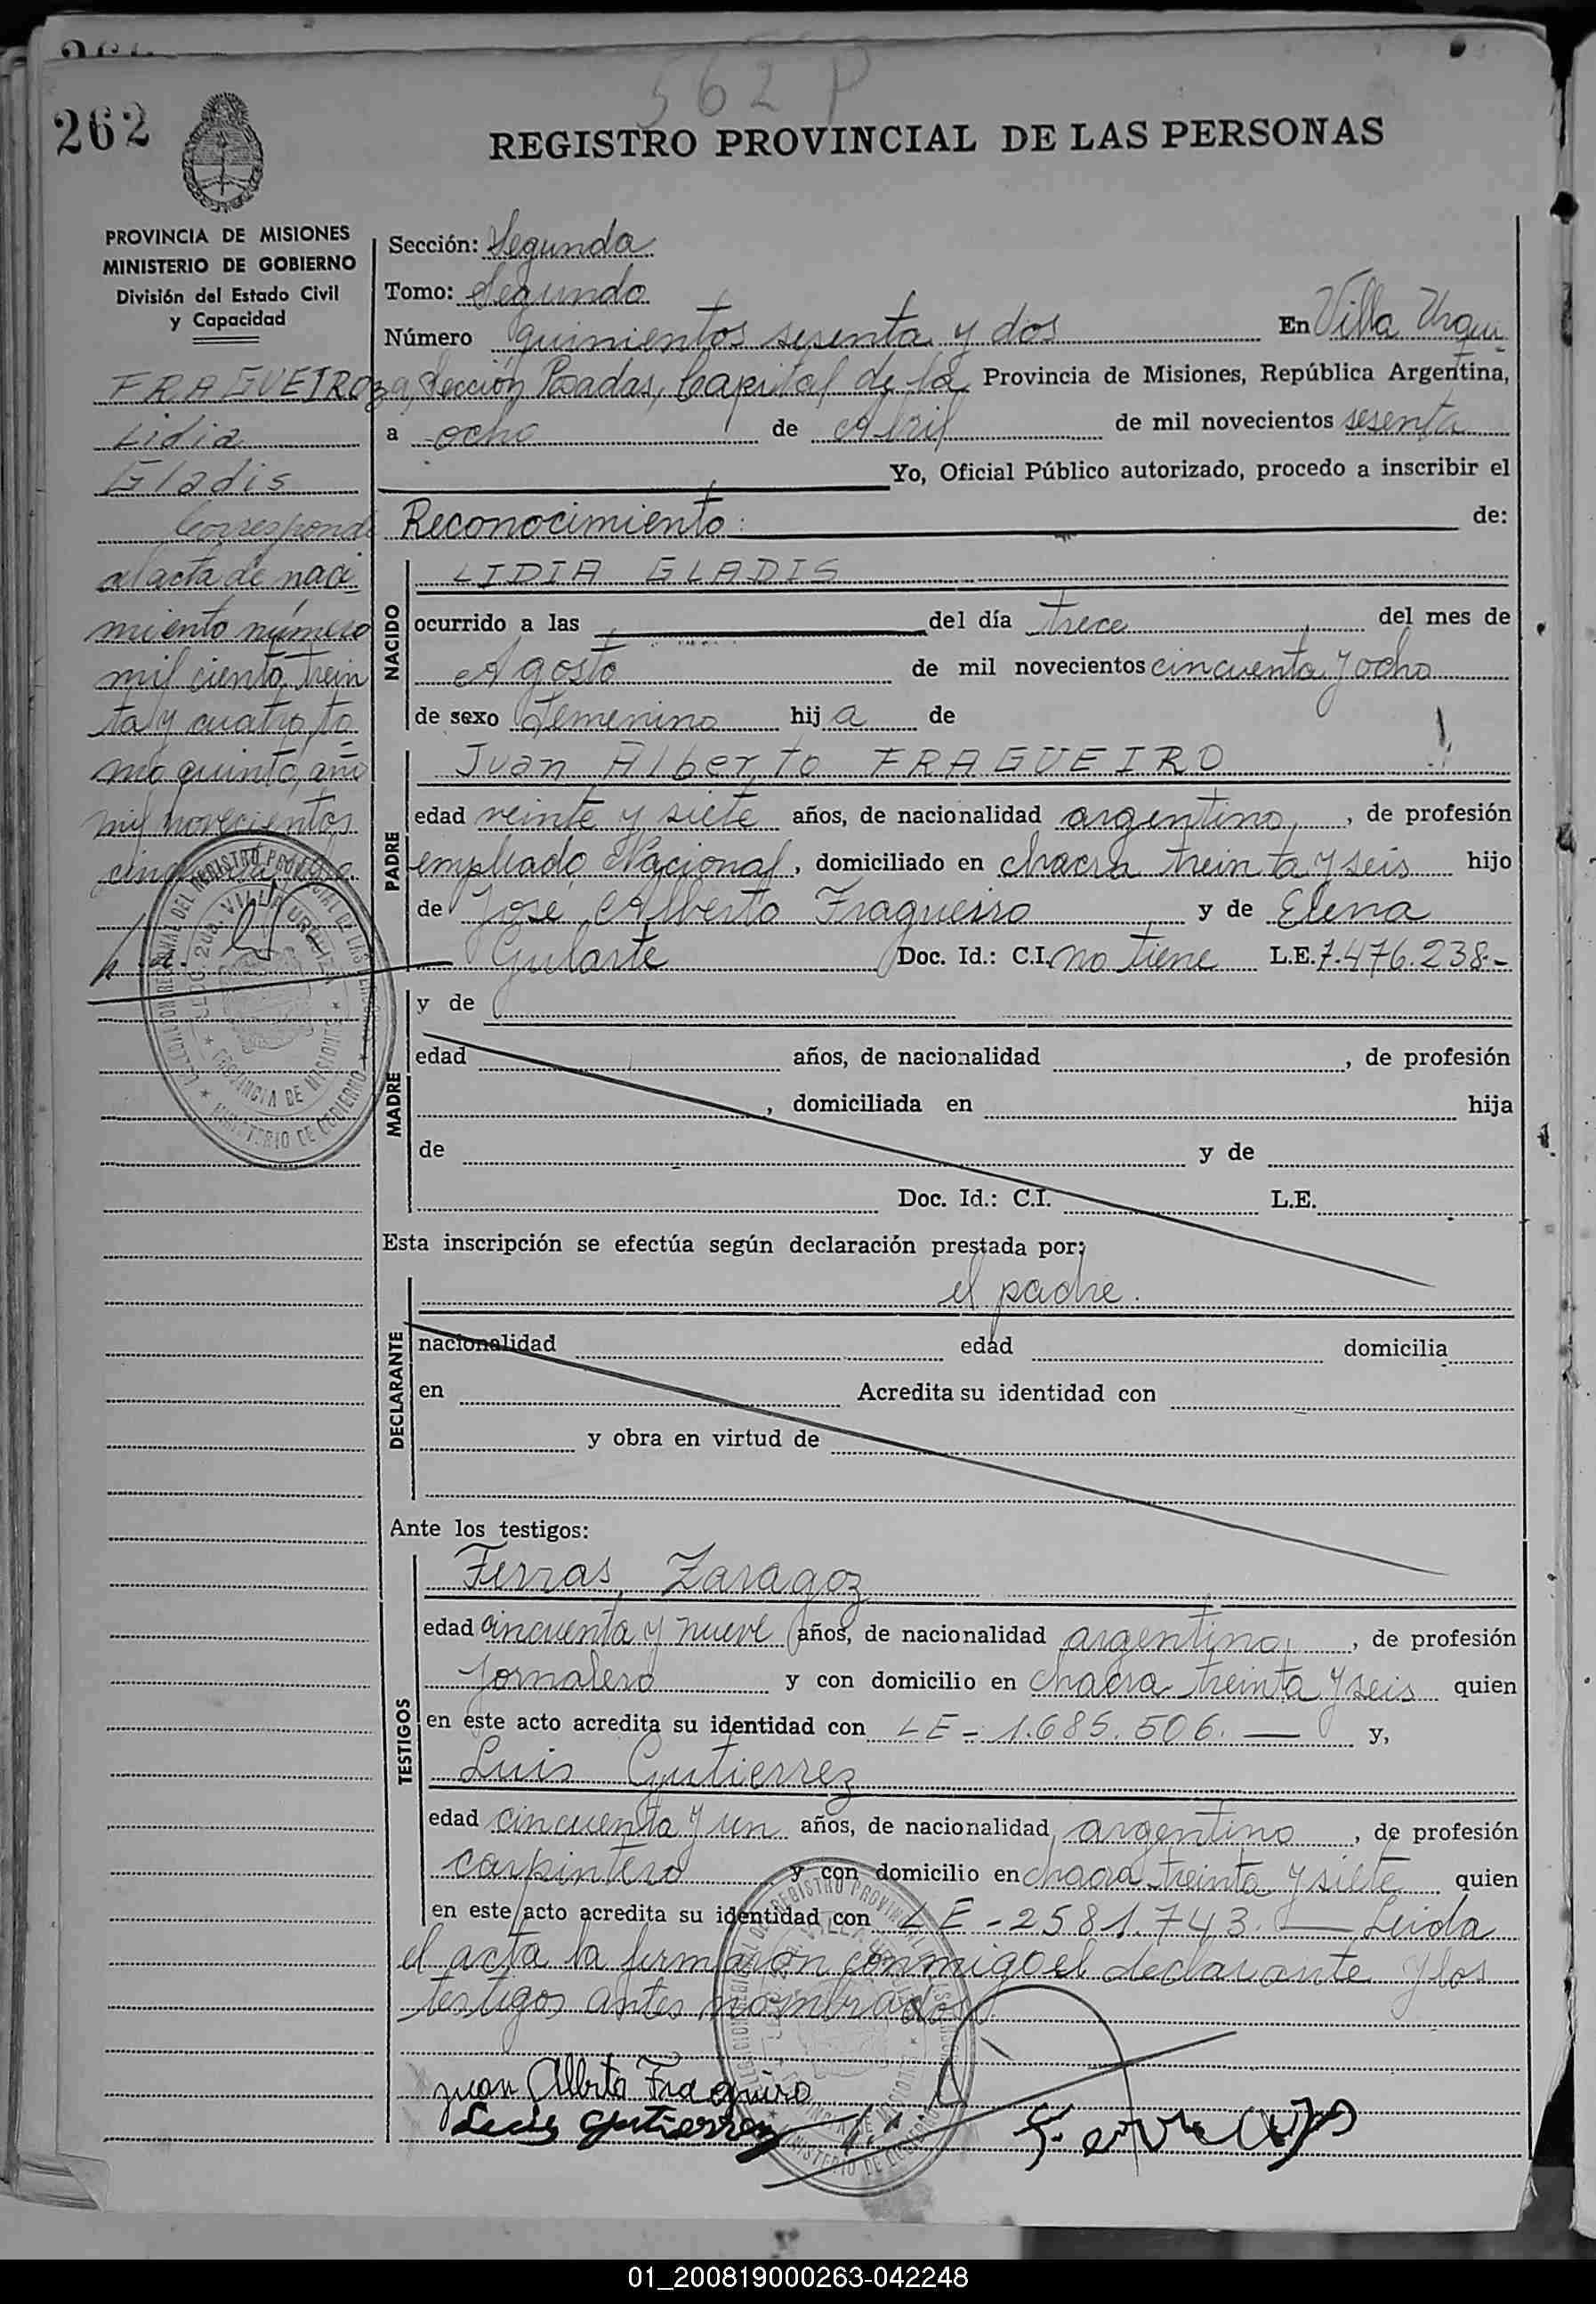 562 P
262
REGISTRO PROVINCIAL DE LAS PERSONAS
PROVINCIA DE MISIONES
MINISTERIO DE GOBIERNO
División del Estado Civil
y Capacidad
FRAGUEIRO
Lidia
Gladis
Corresponde
al acta de naci
miento número
mil ciento trein
ta y cuatro, to
mo quinto, año
mil novecientos
Sección: Segunda
Tomo: Segundo
Número quinientos sesenta y dos En Villa Urqui-
za, Sección Posadas, Capital de la Provincia de Misiones, República Argentina,
a ocho de Abril de mil novecientos sesenta
Yo, Oficial Público autorizado, procedo a inscribir el
Reconocimiento: de:
NACIDO
LIDIA GLADIS
ocurrido a las del día trece del mes de
Agosto de mil novecientos cincuenta y ocho
de sexo femenino hija de
PADRE
Juan Alberto FRAGUEIRO
edad veinte y siete años, de nacionalidad argentino, de profesión
empleado Nacional, domiciliado en chacra treinta y seis hijo
de José Alberto Fragueiro y de Elena
Gularte Doc. Id.: C.I. no tiene L.E. 7.476.238.-
MADRE
y de
edad años, de nacionalidad , de profesión
, domiciliada en hija
de y de
Doc. Id.: C.I. L.E.
Esta inscripción se efectúa según declaración prestada por:
el padre.
DECLARANTE
nacionalidad edad domicilia
en Acredita su identidad con
y obra en virtud de
Ante los testigos:
TESTIGOS
Ferras, Zaragoz
edad cincuenta y nueve años, de nacionalidad argentino, de profesión
jornalero y con domicilio en chacra treinta y seis quien
en este acto acredita su identidad con LE - 1.685.506. — y,
Luis Gutierrez
edad cincuenta y un años, de nacionalidad argentino, de profesión
carpintero y con domicilio en chacra treinta y siete quien
en este acto acredita su identidad con LE - 2581.743. — Leida
el acta la firmaron conmigo el declarante y los
testigos antes nombrados.
Juan Alberto Fragueiro
Luis Gutierrez
01_200819000263-042248